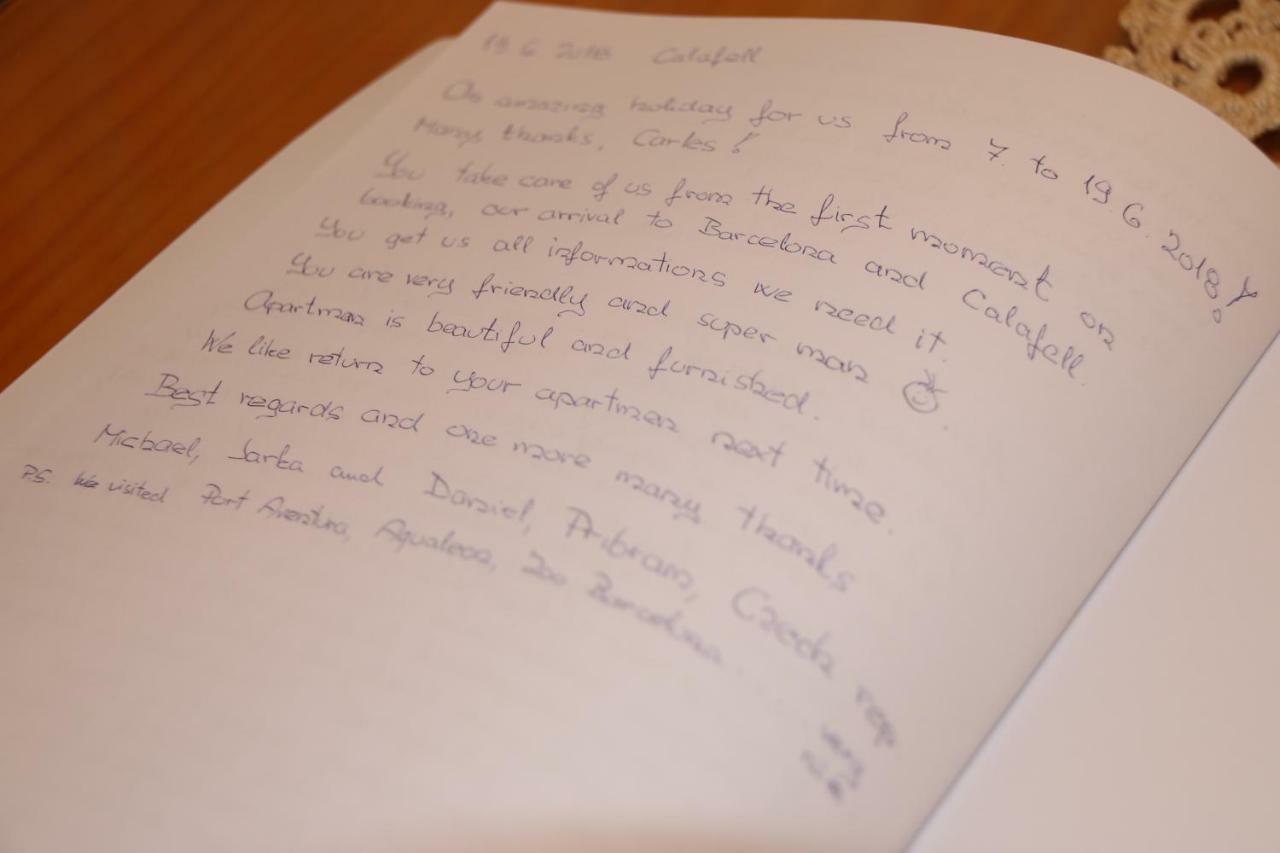 19.6 2018 Calafell
An amazing holiday for us from 7. to 19.6.2018!
Many thanks, Carles!
You take care of us from the first moment on
booking, our arrival to Barcelona and Calafell.
You get us all informations we need it.
You are very friendly and super man
Apartman is beautiful and furnished.
We like return to your apartmen next time.
Best regards and one more many thanks
Michael, Jarka and Daniel, Pribram, Czech rep
P.S. We visited Port Aventura, Aqualeon, Zoo Barcelona...
very